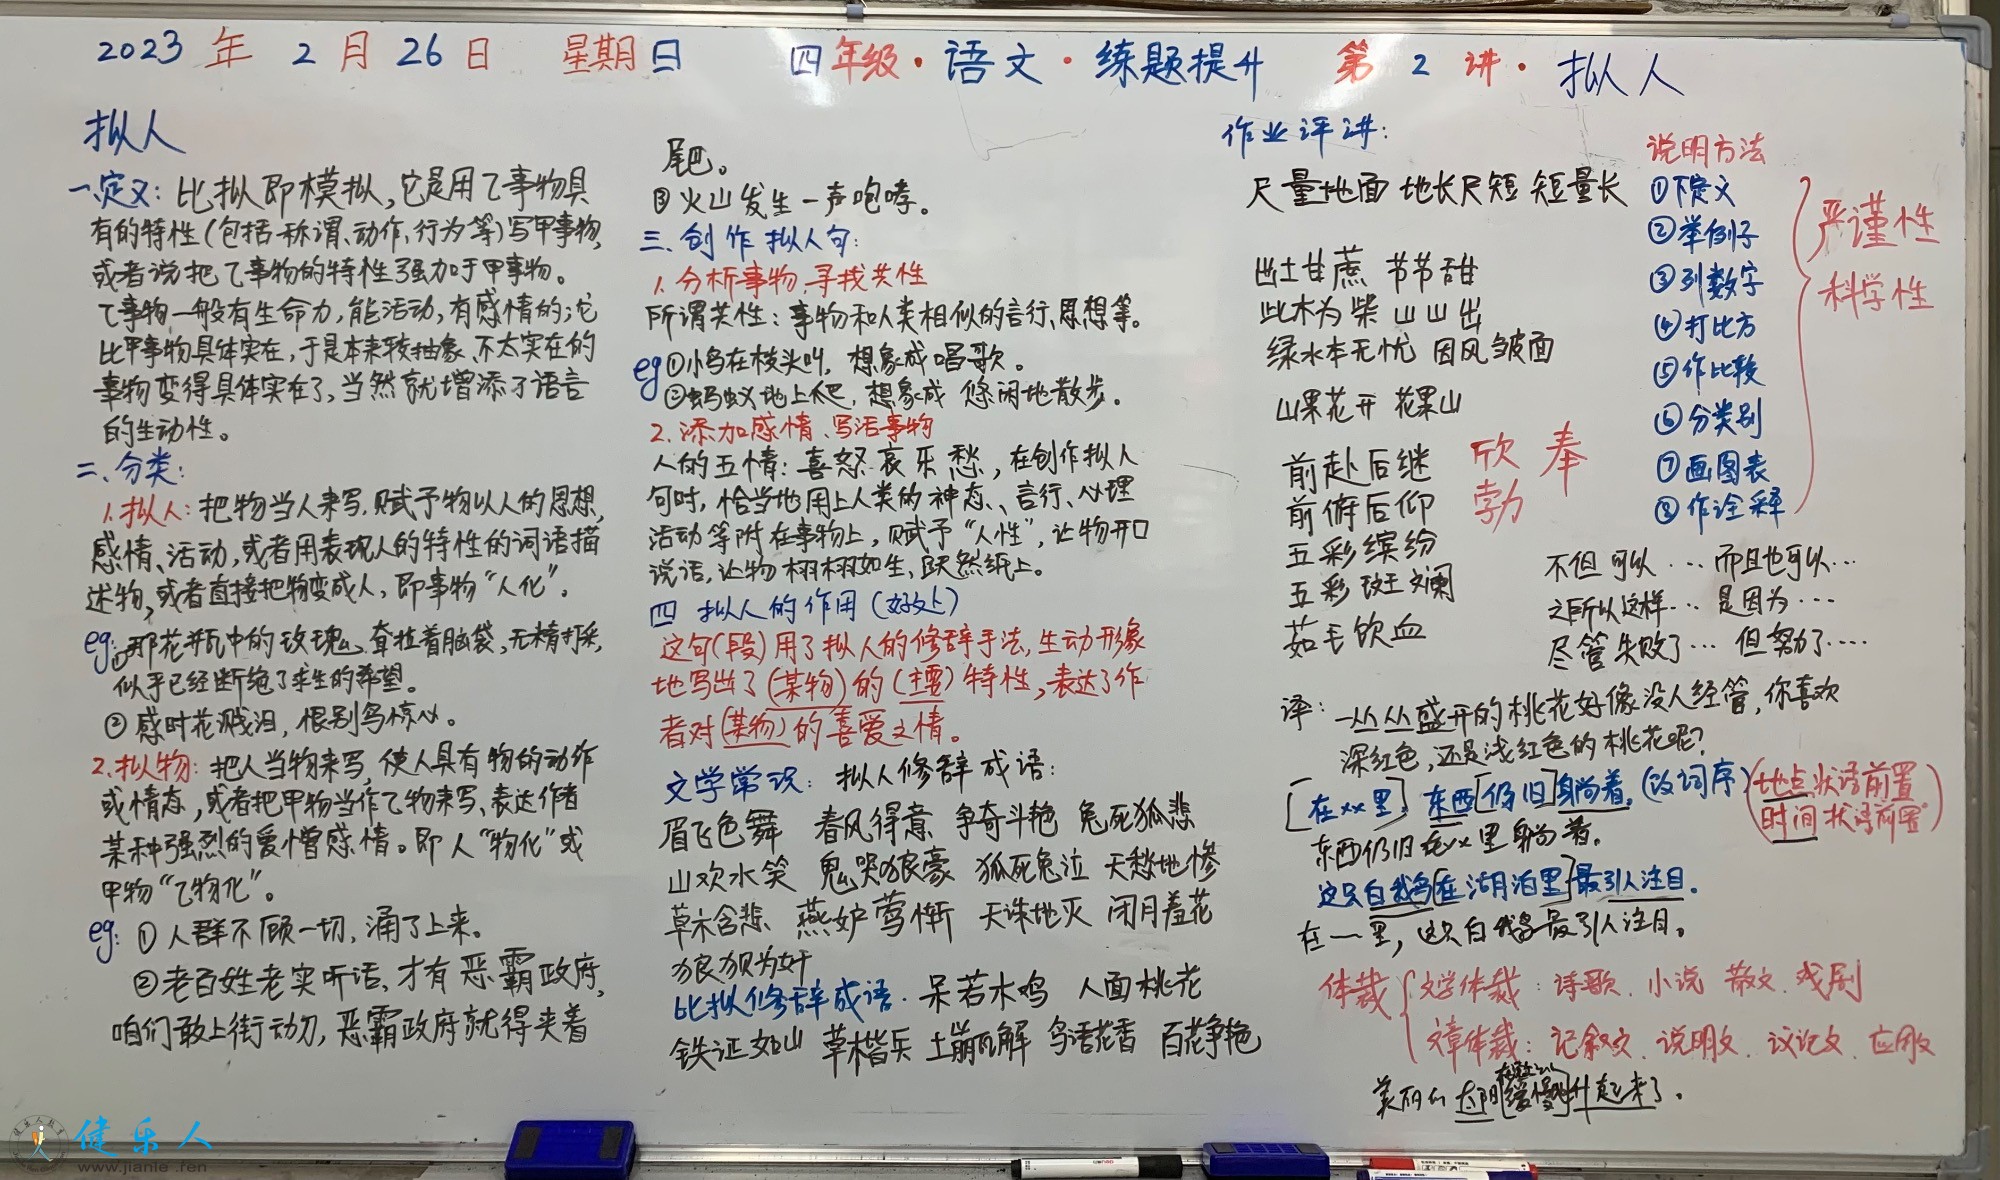 2023 年 2 月 26 日 星期日 四年级·语文·练题提升 第 2 讲·拟人
拟人
一、定义：比拟即模拟，它是用乙事物具
有的特性（包括称谓、动作、行为等）写甲事物，
或者说把乙事物的特性强加于甲事物。
乙事物一般有生命力，能活动，有感情的；它
比甲事物具体实在，于是本来较抽象、不太实在的
事物变得具体实在了，当然就增添了语言
的生动性。
二、分类：
1.拟人：把物当人来写，赋予物以人的思想，
感情、活动，或者用表现人的特性的词语描
述物，或者直接把物变成人，即事物“人化”。
eg：①那花瓶中的玫瑰、耷拉着脑袋，无精打采，
似乎已经断绝了求生的希望。
②感时花溅泪，恨别鸟惊心。
2.拟物：把人当物来写，使人具有物的动作
或情态，或者把甲物当作乙物来写、表达作者
某种强烈的爱憎感情。即人“物化”或
甲物“乙物化”。
eg：①人群不顾一切，涌了上来。
②老百姓老实听话，才有恶霸政府，
咱们敢上街动刀，恶霸政府就得夹着
尾巴。
③火山发生一声咆哮。
三、创作拟人句：
1.分析事物、寻找共性
所谓共性：事物和人类相似的言行、思想等。
eg①小鸟在枝头叫，想象成唱歌。
②蚂蚁地上爬，想象成悠闲地散步。
2.添加感情、写活事物
人的五情：喜怒哀乐愁，在创作拟人
句时，恰当地用上人类的神态、言行、心理
活动等附在事物上，赋予“人性”，让物开口
说话，让物栩栩如生、跃然纸上。
四 拟人的作用（好处）
这句（段）用了拟人的修辞手法，生动形象
地写出了（某物）的（主要）特性，表达了作
者对（某物）的喜爱之情。
文学常识：拟人修辞成语：
眉飞色舞 春风得意 争奇斗艳 兔死狐悲
山欢水笑 鬼哭狼豪 狐死兔泣 天愁地惨
草木含悲 燕妒莺惭 天诛地灭 闭月羞花
狼狈为奸
比拟修辞成语·呆若木鸡 人面桃花
铁证如山 草木皆兵 土崩瓦解 鸟语花香 百花争艳
作业评讲：
尺量地面 地长尺短 短量长
出土甘蔗 节节甜
此木为柴 山山出
绿水本无忧 因风皱面
山果花开 花果山
前赴后继
前俯后仰
五彩缤纷
五彩斑斓
茹毛饮血
欣 奉
勃
说明方法
①下定义
②举例子
③列数字
④打比方
⑤作比较
⑥分类别
⑦画图表
⑧作诠释
严谨性
科学性
不但可以…而且也可以…
之所以这样…是因为…
尽管失败了…但努力了….
译：一丛丛盛开的桃花好像没人经管，你喜欢
深红色，还是浅红色的桃花呢？
[在xx里]，东西[仍旧]躺着。（改词序）（地点状语前置
时间状语前置）
东西仍旧在xx里躺着。
这只白我鸟[在湖泊里]最引人注目。
在一里，这只白我鸟最引人注目。
体裁
文学体裁：诗歌、小说 散文、戏剧
文章体裁：记叙文、说明文、议论文、应用文
美丽的太阳缓慢升起来了。
健乐人
www.jianle.ren